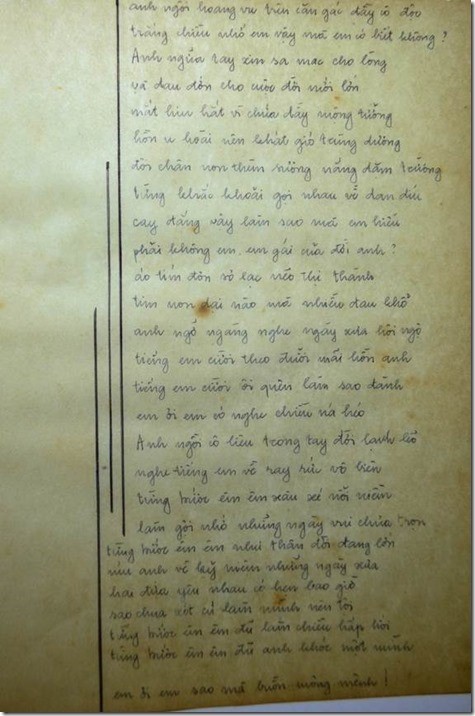 anh ngồi hoang vu trên căn gác đầy cô độc
trắng chiều nhớ em vậy mà em có biết không?
Anh ngửa tay xin sa mạc cho lòng
và đau đớn cho cuộc đời nổi lớn
mắt hiu hắt vì chứa đầy mộng tưởng
hồn u hoài nên khát gió trùng dương
đôi chân non thèm sương nắng dặm trường
từng khắc khoải gọi nhau về đan díu
cay đắng vậy làm sao mà em hiểu
phải không em, em gái của đời anh?
áo tím đơn sơ lạc nẻo thị thành
tim non dại nào mà nhiều đau khổ
anh ngỡ ngàng nghe ngày xưa hội ngộ
tiếng em cười theo đuổi mãi hồn anh
tiếng em cười ôi quên làm sao đành
em ơi em có nghe chiều ná héo
Anh ngồi cô liêu trong tay đời lạnh lẽo
nghe tiếng em về ray rứt vô biên
từng bước êm êm xâu xé nỗi niềm
làm gợi nhớ những ngày vui chưa trọn
từng bước êm êm như thân đời đang lớn
níu anh về kỷ niệm những ngày xưa
hai đứa yêu nhau có hẹn bao giờ
sao chua xót cứ làm mình nên tội
từng bước êm êm đủ làm chiều hấp hối
từng bước êm êm đủ anh khóc một mình
em ơi em sao mà buồn mông mênh!